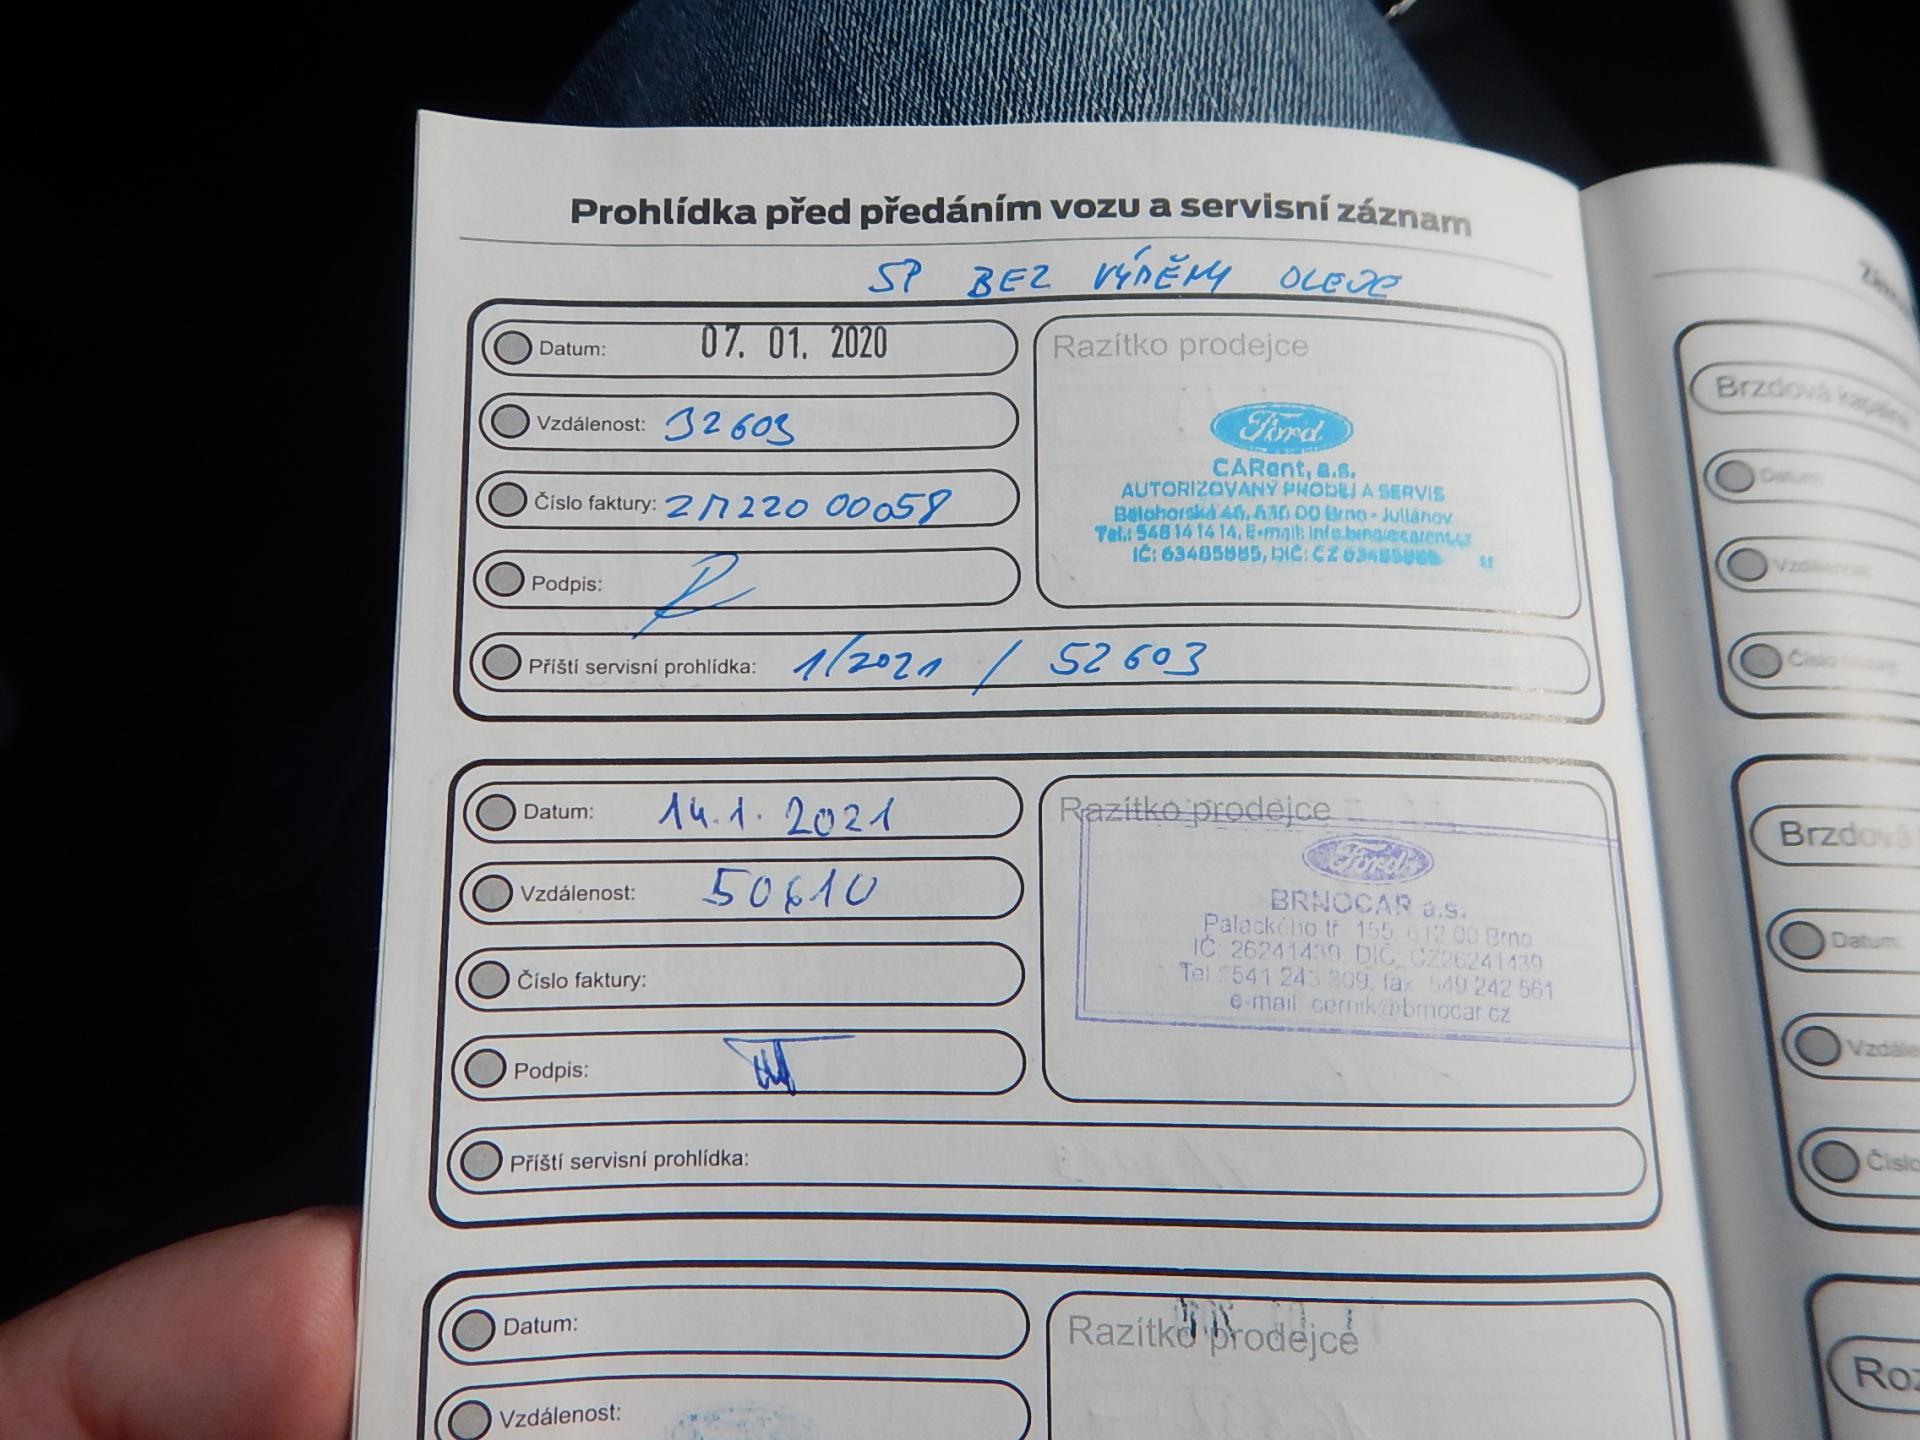 Prohlídka před předáním vozu a servisní záznam
SP BEZ VÝMĚNY OLEJE
Datum: 07. 01. 2020
Vzdálenost: 32603
Číslo faktury: ZM220 00058
Podpis:
Příští servisní prohlídka: 1/2021 / 52603
Razítko prodejce
Ford
CARent, a.s.
AUTORIZOVANÝ PRODEJ A SERVIS
Bělohorská 46, 636 00 Brno - Juliánov
Tel.: 548 14 14 14, E-mail: info.brno@carent.cz
IČ: 63485885, DIČ: CZ 63485885
Datum: 14.1.2021
Vzdálenost: 50610
Číslo faktury:
Podpis:
Příští servisní prohlídka:
Razítko prodejce
Ford
BRNOCAR a.s.
Palackého tř. 155, 612 00 Brno
IČ: 26241439, DIČ: CZ26241439
Tel.: 541 243 809, fax: 549 242 561
e-mail: cernik@brnocar.cz
Datum:
Vzdálenost:
Razítko prodejce
Brzdová kapalina
Datum:
Vzdálenost:
Číslo faktury:
Brzdová
Datum:
Vzdále
Číslo
Roz